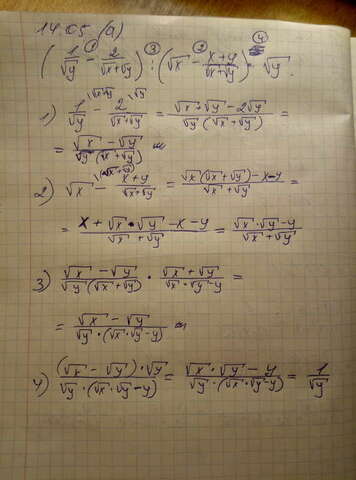 14.05 (а)
① ③ ② ④
(1/√y − 2/(√x+√y)) : (√x − (x+y)/(√x+√y)) · √y.
1) 1/√y − 2/(√x+√y) = (√x+√y−2√y)/(√y(√x+√y)) =
= (√x−√y)/(√y(√x+√y))
2) √x − (x+y)/(√x+√y) = (√x(√x+√y)−x−y)/(√x+√y) =
= (x+√x·√y−x−y)/(√x+√y) = (√x·√y−y)/(√x+√y)
3) (√x−√y)/(√y(√x+√y)) · (√x+√y)/(√x·√y−y) =
= (√x−√y)/(√y·(√x·√y−y))
4) ((√x−√y)·√y)/(√y·(√x·√y−y)) = (√x·√y−y)/(√y·(√x·√y−y)) = 1/√y